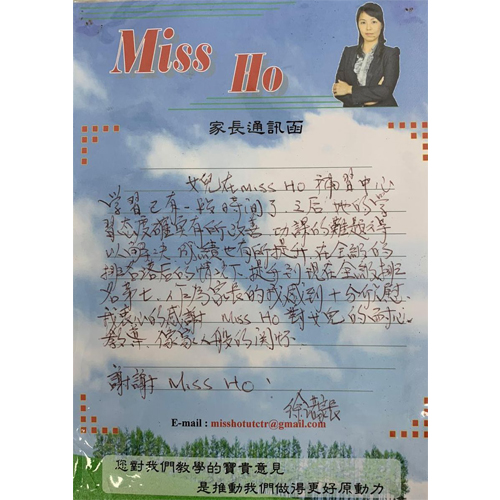 Miss Ho
家長通訊函
女兒在Miss Ho 補習中心
學習已有一段時間了,之后她的學
習態度確實有所改善,功課的難題得
以解決,成績也有所提升,在全級的
排名落后的情况下提升到現在全級排
名第七,作為家長的我感到十分欣慰.
我衷心的感謝 Miss Ho 對女兒的耐心
教導,像家人般的関怀.
謝謝 Miss Ho!
E-mail : misshotutctr@gmail.com
您對我們教學的寶貴意見
是推動我們做得更好原動力